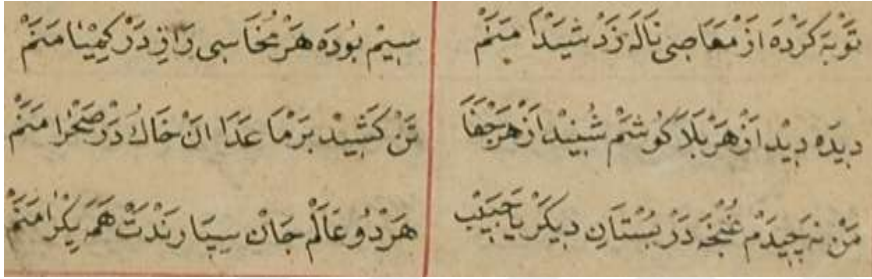 تَوْبَه كَرْدَه اَزْ مَعَاصِى نَالَه زَدْ شَيْدَا مَنَمْ سِيمْ بُودَه هَرْ نُحَاسِى رَازِ دَرْ كِيمْيَا مَنَمْ
دِيدَه دِيدْ اَزْ هَرْ بَلَا كُوشَمْ شُنِيدْ اَزْ هَرْ جَفَا تَنْ كَشِيدْ بَرْ مَا عَدَا اَنْ خَاكْ دَرْ صَحْرَا مَنَمْ
مَنْ نَه چِيدَمْ غُنْجَه دَرْ بُسْتَانِ دِيكَرْ يَا حَبِيبْ هَرْ دُو عَالَمْ جَانْ سِپَارَنْدَتْ هَمَه يِكْرَا مَنَمْ